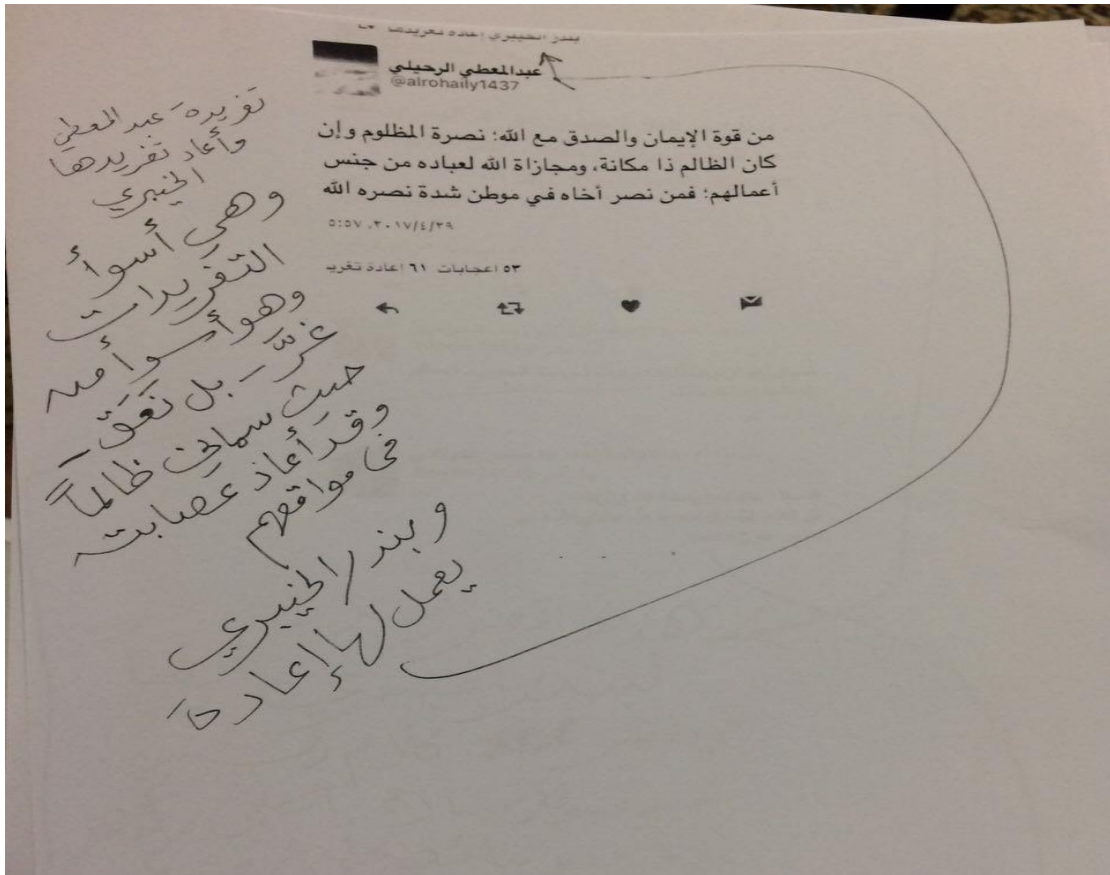 بندر الخيبري إعادة تغريدها
عبدالمعطي الرحيلي
@alrohaily1437
من قوة الإيمان والصدق مع الله؛ نصرة المظلوم وإن
كان الظالم ذا مكانة، ومجازاة الله لعباده من جنس
أعمالهم؛ فمن نصر أخاه في موطن شدة نصره الله
٢٠١٧/٤/٢٩، ٥:٥٧
٥٣ اعجابات ٦١ إعادة تغريد
تغريدة عبد المعطي
وأعاد تغريدها
الخيبري
وهي أسوأ
التغريدات
وهو أسوأ من
غرّد بل نعق
حيث سماني ظالماً
وقد عصابته
في مواقعهم
وبندر الخيبري
يعمل لها إعادة